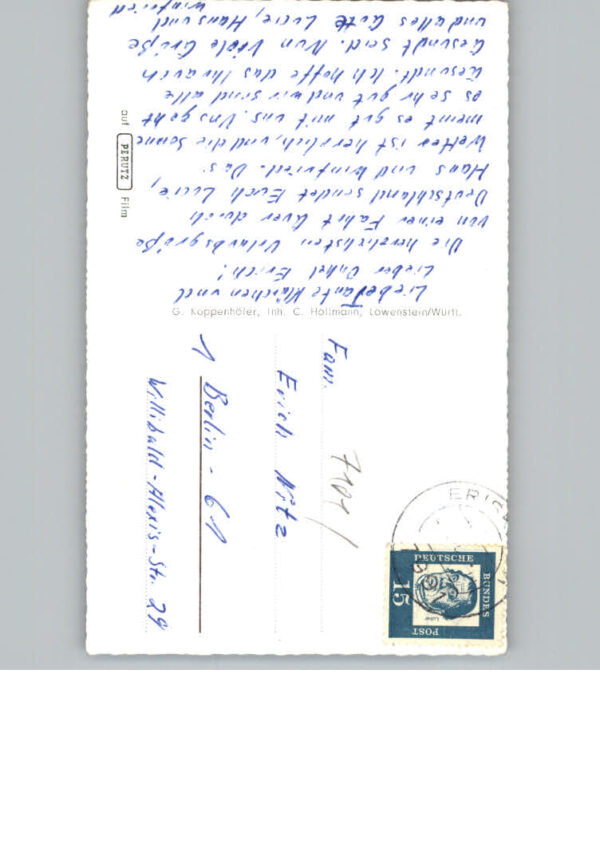 Liebe Tante Klärchen und
Lieber Onkel Erich!
Die herzlichsten Urlaubsgrüße
von einer Fahrt quer durch
Deutschland sendet Euch Lucie,
Hans und Winfried. Das
Wetter ist herrlich, und die Sonne
meint es gut mit uns. Uns geht
es sehr gut und wir sind alle
Gesundt. Ich hoffe das Ihr auch
Gesundt seid. Nun Viele Grüße
und alles Gute Lucie, Hans und
Winfried
auf PERUTZ Film
G. Koppenhöfer, Inh. C. Hollmann, Löwenstein/Württ.
Fam.
Erich Nitz
1 Berlin - 61
Willibald-Alexis-Str. 29
7101
DEUTSCHE
BUNDES
POST
15
Luther